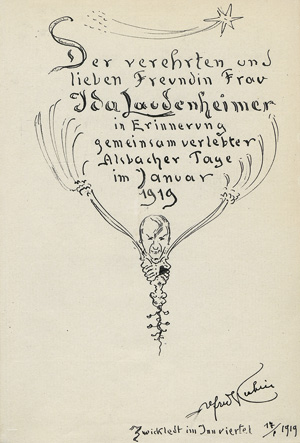 Der verehrten und
lieben Freundin Frau
Ida Laudenheimer
in Erinnerung
gemeinsam verlebter
Alsbacher Tage
im Januar
1919
Alfred Kubin
Zwickledt im Innviertel 17/1 1919